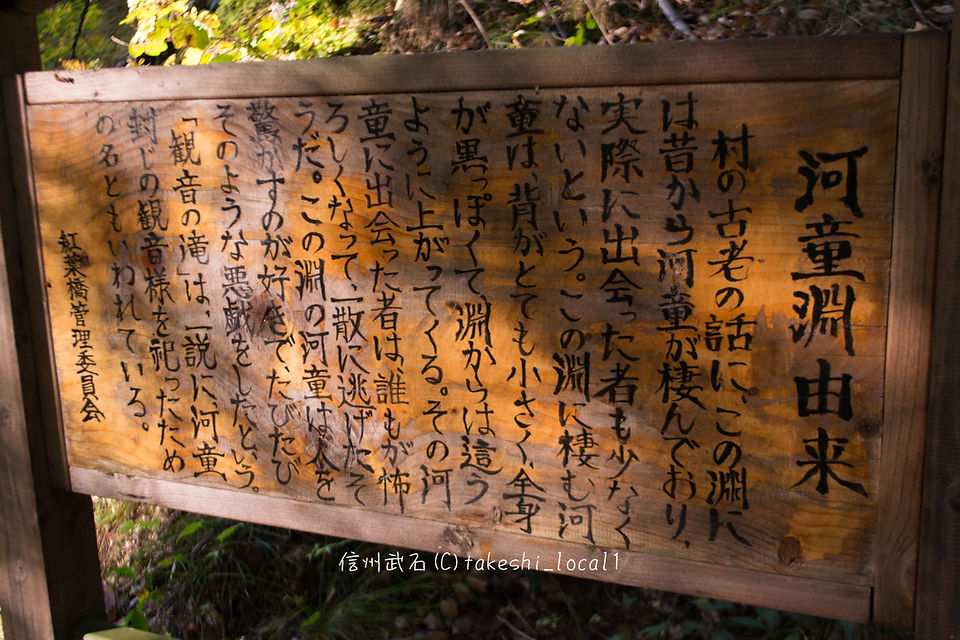 河童淵由来
村の古老の話に、この淵に
は昔から河童が棲んでおり、
実際に出会った者も少なく
ないという。この淵に棲む河
童は、背がとても小さく、全身
が黒っぽくて、淵からは這う
ように上がってくる。その河
童に出会った者は、誰もが怖
ろしくなって、一散に逃げたそ
うだ。この淵の河童は人を
驚かすのが好きで、たびたび
そのような悪戯をしたという。
「観音の滝」は、一説に、河童
封じの観音様を祀ったため
の名ともいわれている。
紅葉橋管理委員会
信州武石(C)takeshi_local1